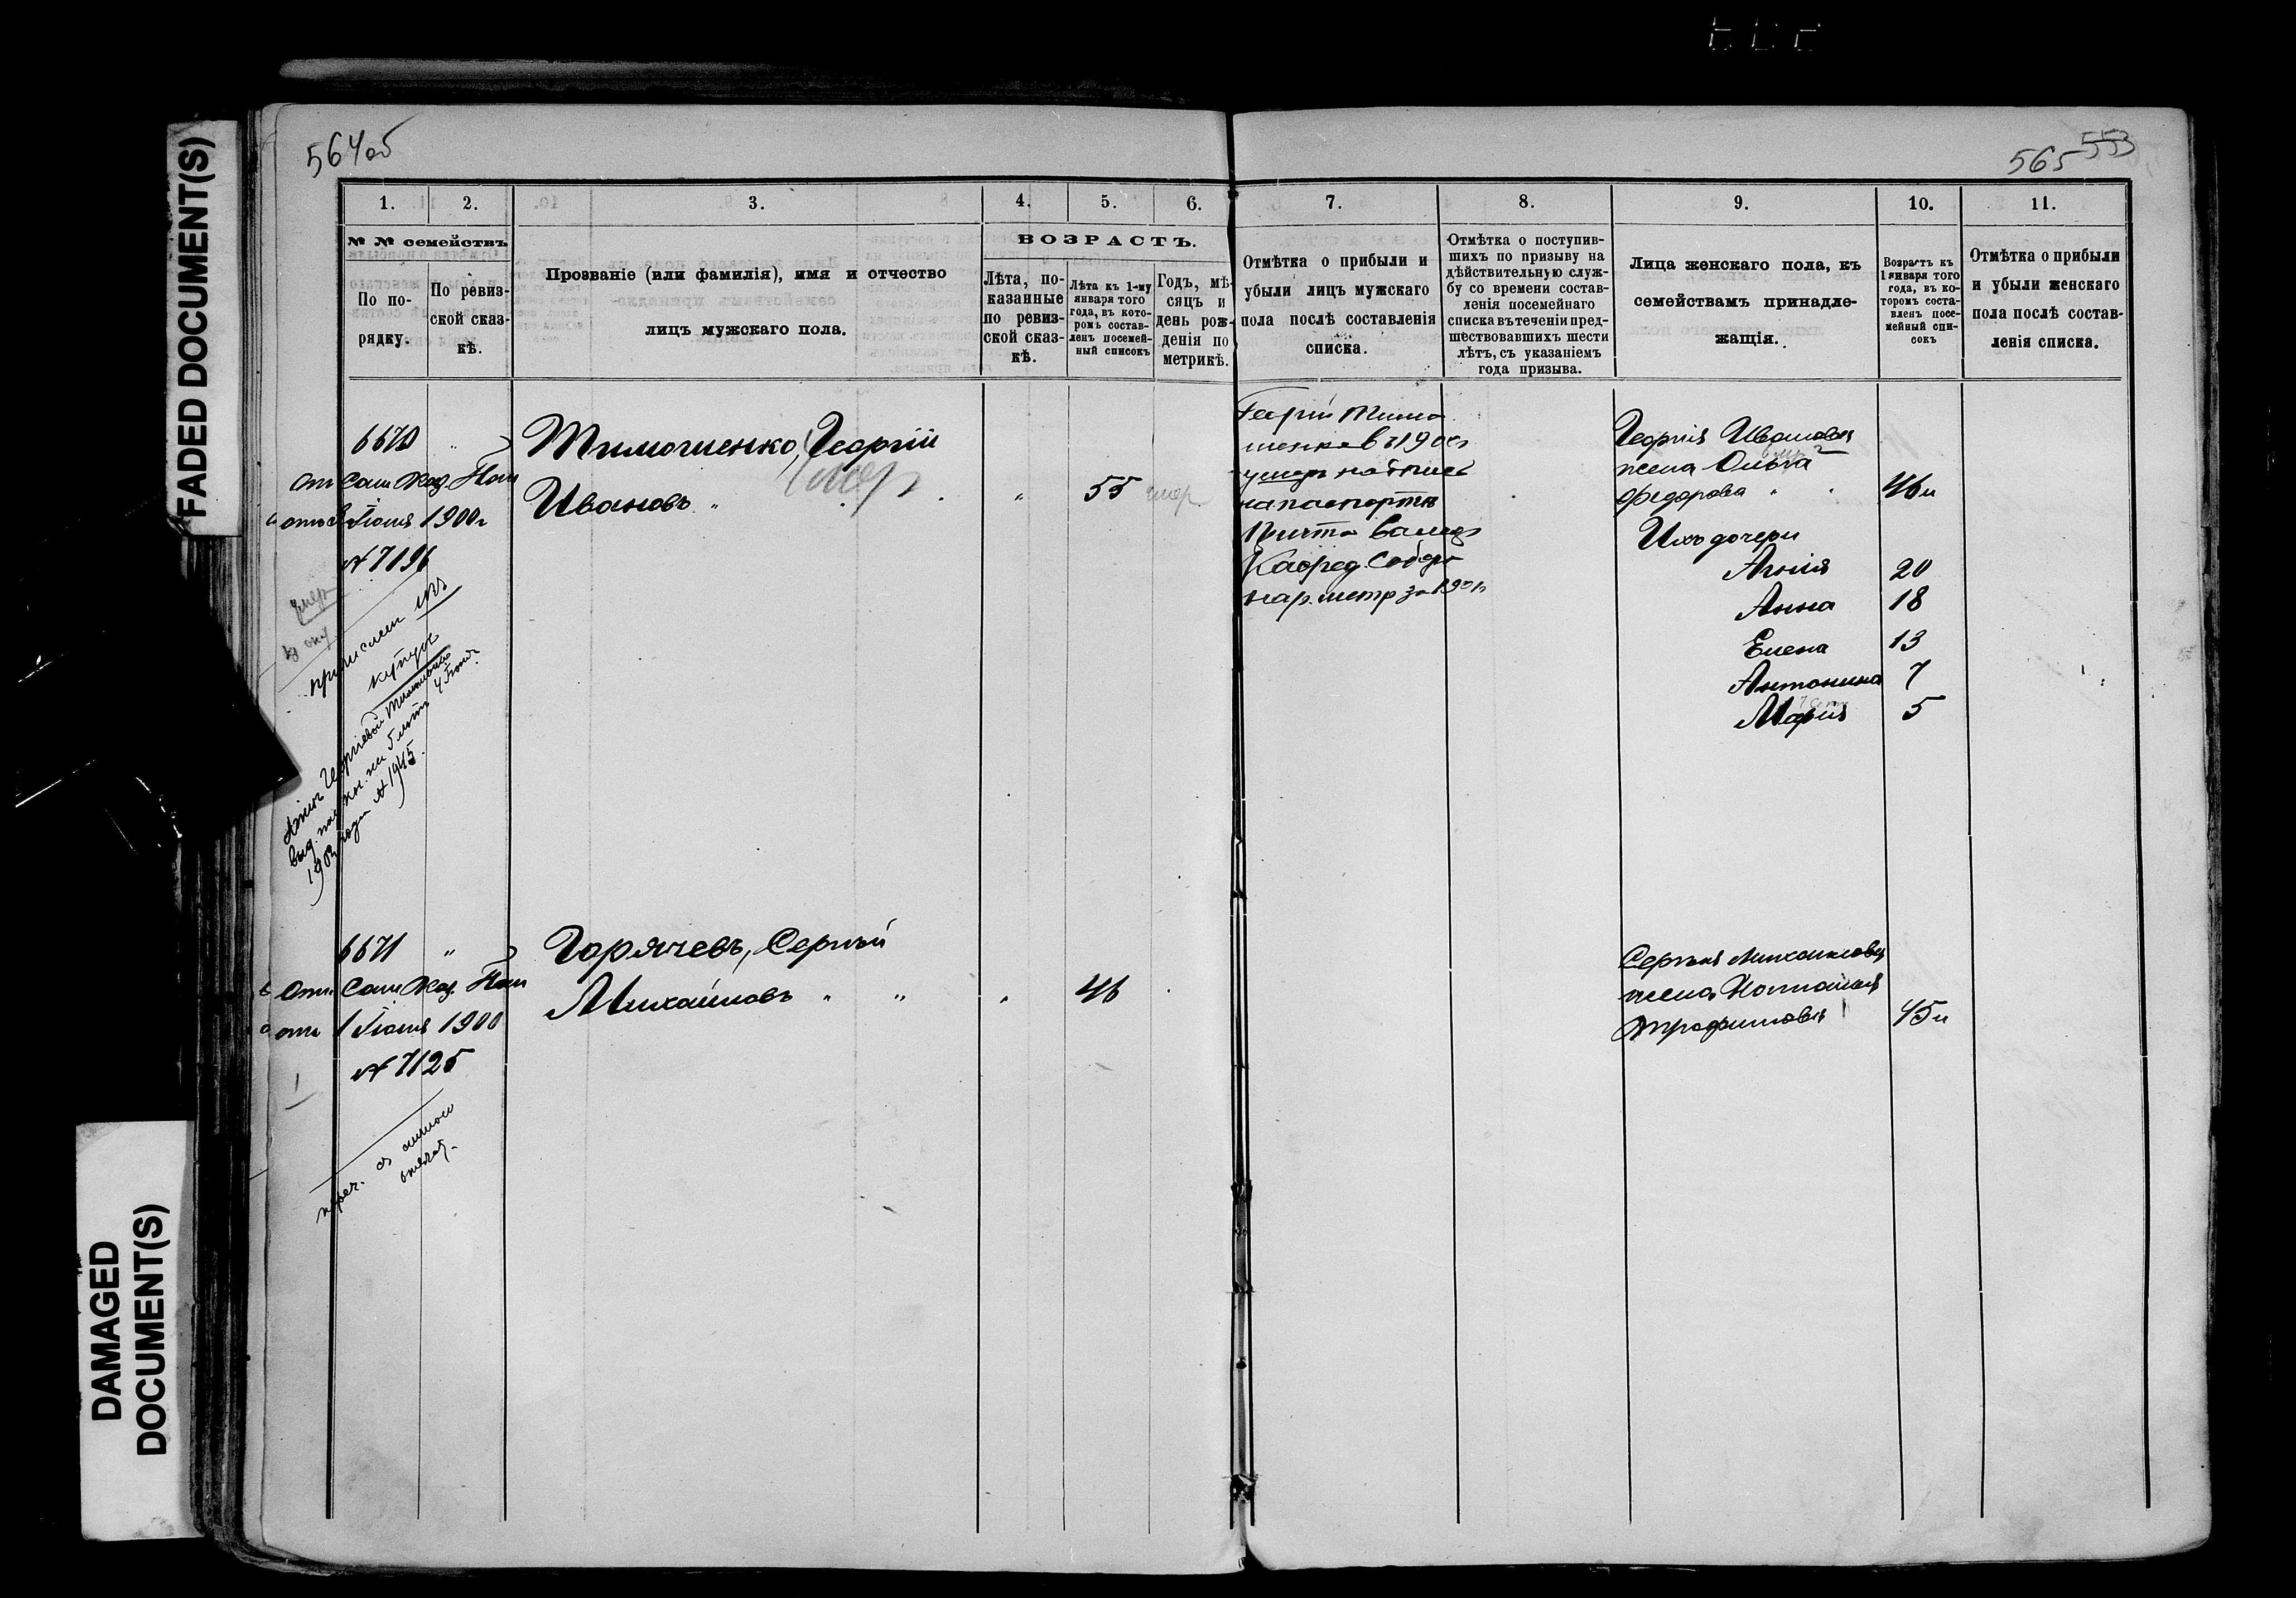 FADED DOCUMENT(S)
DAMAGED
DOCUMENT(S)
564об
565 553
1. 2. 3. 4. 5. 6. 7. 8. 9. 10. 11.
№ № семействъ
По по-
рядку.
По ревиз-
ской сказ-
кѣ.
Прозваніе (или фамилія), имя и отчество
лицъ мужскаго пола.
ВОЗРАСТЪ.
Лѣта, по-
казанные
по ревиз-
ской сказ-
кѣ.
Лѣта къ 1-му
января того
года, въ кото-
ромъ состав-
ленъ посемей-
ный списокъ
Годъ, мѣ-
сяцъ и
день рож-
денія по
метрикѣ.
Отмѣтка о прибыли и
убыли лицъ мужскаго
пола послѣ составленія
списка.
Отмѣтка о поступив-
шихъ по призыву на
дѣйствительную служ-
бу со времени состав-
ленія посемейнаго
списка въ теченіи пред-
шествовавшихъ шести
лѣтъ, съ указаніемъ
года призыва.
Лица женскаго пола, къ
семействамъ принадле-
жащія.
Возрастъ къ
1 января того
года, въ ко-
торомъ соста-
вленъ посе-
мейный спи-
сокъ
Отмѣтка о прибыли
и убыли женскаго
пола послѣ состав-
ленія списка.
6670 "
От Сам Каз. Пал
от Іюня 1900г
№ 7196
умер
приписан
купцы
Георгіевой Тимошенко
вид. на 5 лѣтъ
1902 года № 1945.
Тимошенко, Георгій
Ивановъ "
умер
" 55 умер
Георгій Тимо
шенко в 1900г
умеръ надпись
на паспортѣ
Причта Самар
Кафед. Собор
Георгія Иванова
жена Ольга
Федорова "
46 л
Ихъ дочери
Агнія 20
Анна 18
Елена 13
Антонина 7
Марія 5
6671 "
От. Сам Каз. Пал
от 1 Іюня 1900
№ 7125
Горячевъ, Сергѣй
Михайловъ " "
" 46
Сергѣя Михайлова
жена Наталья
Трофимова
45 л